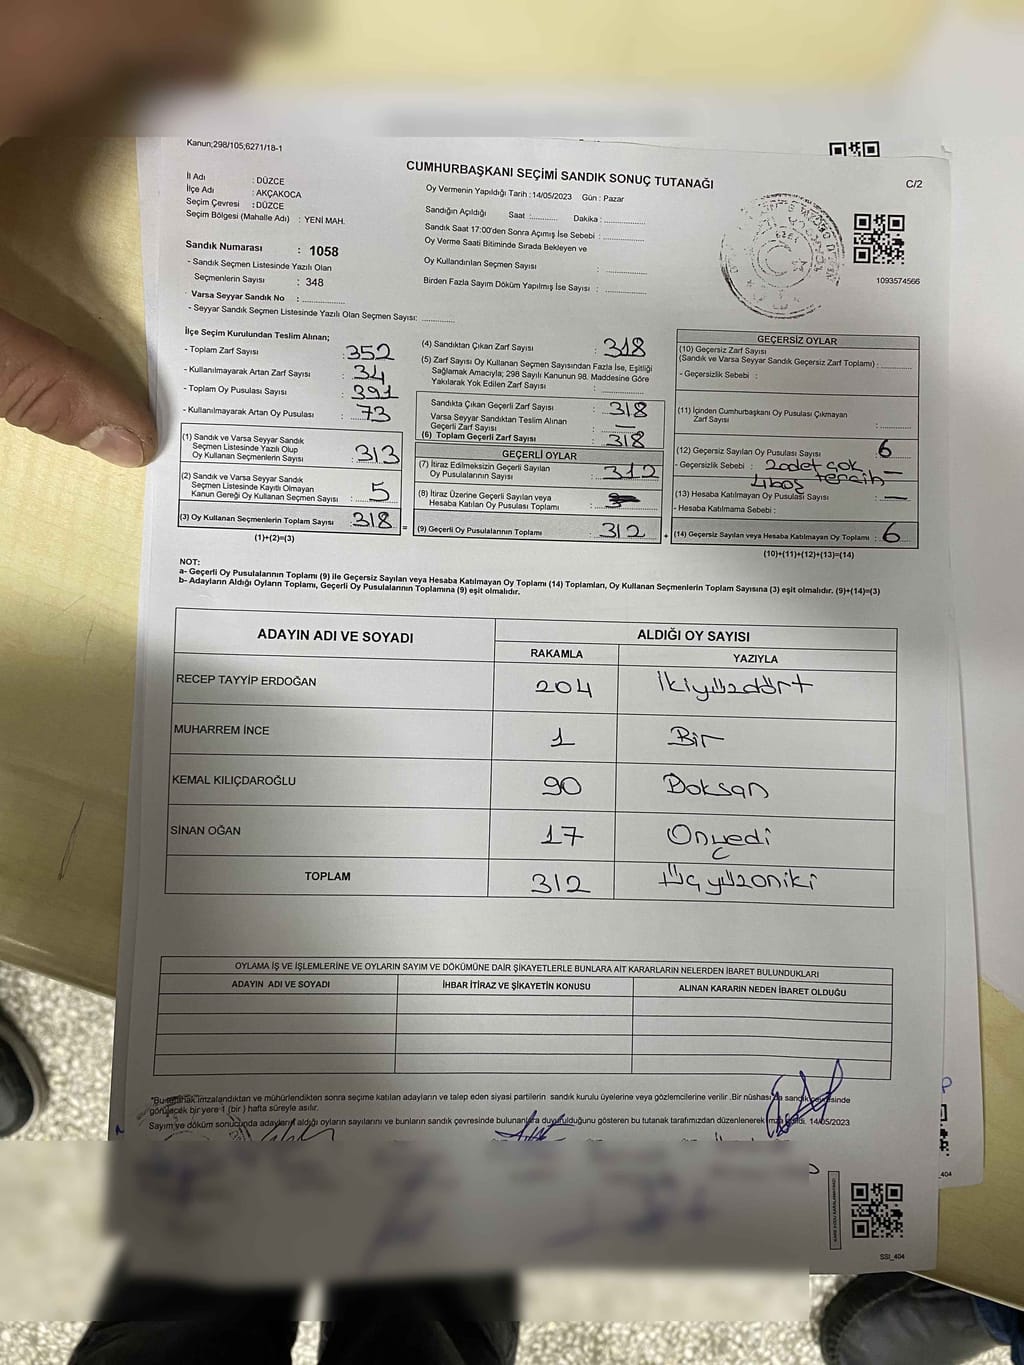 Kanun;298/105;6271/18-1
CUMHURBAŞKANI SEÇİMİ SANDIK SONUÇ TUTANAĞI
C/2
İl Adı : DÜZCE
İlçe Adı : AKÇAKOCA
Seçim Çevresi : DÜZCE
Seçim Bölgesi (Mahalle Adı) : YENİ MAH.
Sandık Numarası : 1058
- Sandık Seçmen Listesinde Yazılı Olan
Seçmenlerin Sayısı : 348
Varsa Seyyar Sandık No : ............
- Seyyar Sandık Seçmen Listesinde Yazılı Olan Seçmen Sayısı: ............
Oy Vermenin Yapıldığı Tarih : 14/05/2023 Gün : Pazar
Sandığın Açıldığı Saat :............ Dakika :............
Sandık Saat 17:00'den Sonra Açımış İse Sebebi : ............
Oy Verme Saati Bitiminde Sırada Bekleyen ve
Oy Kullandırılan Seçmen Sayısı : ............
Birden Fazla Sayım Döküm Yapılmış İse Sayısı : ............
1093574566
İlçe Seçim Kurulundan Teslim Alınan;
- Toplam Zarf Sayısı : 352
- Kullanılmayarak Artan Zarf Sayısı : 34
- Toplam Oy Pusulası Sayısı : 391
- Kullanılmayarak Artan Oy Pusulası : 73
(1) Sandık ve Varsa Seyyar Sandık
Seçmen Listesinde Yazılı Olup
Oy Kullanan Seçmenlerin Sayısı : 313
(2) Sandık ve Varsa Seyyar Sandık
Seçmen Listesinde Kayıtlı Olmayan
Kanun Gereği Oy Kullanan Seçmen Sayısı : 5
(3) Oy Kullanan Seçmenlerin Toplam Sayısı : 318 =
(1)+(2)=(3)
(4) Sandıktan Çıkan Zarf Sayısı : 318
(5) Zarf Sayısı Oy Kullanan Seçmen Sayısından Fazla İse, Eşitliği
Sağlamak Amacıyla; 298 Sayılı Kanunun 98. Maddesine Göre
Yakılarak Yok Edilen Zarf Sayısı : ............
Sandıkta Çıkan Geçerli Zarf Sayısı : 318
Varsa Seyyar Sandıktan Teslim Alınan
Geçerli Zarf Sayısı : —
(6) Toplam Geçerli Zarf Sayısı : 318
GEÇERLİ OYLAR
(7) İtiraz Edilmeksizin Geçerli Sayılan
Oy Pusulalarının Sayısı : 312
(8) İtiraz Üzerine Geçerli Sayılan veya
Hesaba Katılan Oy Pusulası Toplamı :
(9) Geçerli Oy Pusulalarının Toplamı : 312 +
GEÇERSİZ OYLAR
(10) Geçersiz Zarf Sayısı
(Sandık ve Varsa Seyyar Sandık Geçersiz Zarf Toplamı) : ............
- Geçersizlik Sebebi :
(11) İçinden Cumhurbaşkanı Oy Pusulası Çıkmayan
Zarf Sayısı : ............
(12) Geçersiz Sayılan Oy Pusulası Sayısı : 6
- Geçersizlik Sebebi : 2 adet çok tercih —
4 boş
(13) Hesaba Katılmayan Oy Pusulası Sayısı : —
- Hesaba Katılmama Sebebi :
(14) Geçersiz Sayılan veya Hesaba Katılmayan Oy Toplamı : 6
(10)+(11)+(12)+(13)=(14)
NOT:
a- Geçerli Oy Pusulalarının Toplamı (9) ile Geçersiz Sayılan veya Hesaba Katılmayan Oy Toplamı (14) Toplamları, Oy Kullanan Seçmenlerin Toplam Sayısına (3) eşit olmalıdır. (9)+(14)=(3)
b- Adayların Aldığı Oyların Toplamı, Geçerli Oy Pusulalarının Toplamına (9) eşit olmalıdır.
ADAYIN ADI VE SOYADI
ALDIĞI OY SAYISI
RAKAMLA YAZIYLA
RECEP TAYYİP ERDOĞAN 204 İkiyüzdört
MUHARREM İNCE 1 Bir
KEMAL KILIÇDAROĞLU 90 Doksan
SİNAN OĞAN 17 Onyedi
TOPLAM 312 Üçyüzoniki
OYLAMA İŞ VE İŞLEMLERİNE VE OYLARIN SAYIM VE DÖKÜMÜNE DAİR ŞİKAYETLERLE BUNLARA AİT KARARLARIN NELERDEN İBARET BULUNDUKLARI
ADAYIN ADI VE SOYADI İHBAR İTİRAZ VE ŞİKAYETİN KONUSU ALINAN KARARIN NEDEN İBARET OLDUĞU
"Bu tutanak imzalandıktan ve mühürlendikten sonra seçime katılan adayların ve talep eden siyasi partilerin sandık kurulu üyelerine veya gözlemcilerine verilir .Bir nüshası da sandık çevresinde
görülecek bir yere 1 (bir ) hafta süreyle asılır.
Sayım ve döküm sonucunda adayların aldığı oyların sayılarını ve bunların sandık çevresinde bulunanlara duyurulduğunu gösteren bu tutanak tarafımızdan düzenlenerek imza edildi. 14/05/2023
SSI_404
_404